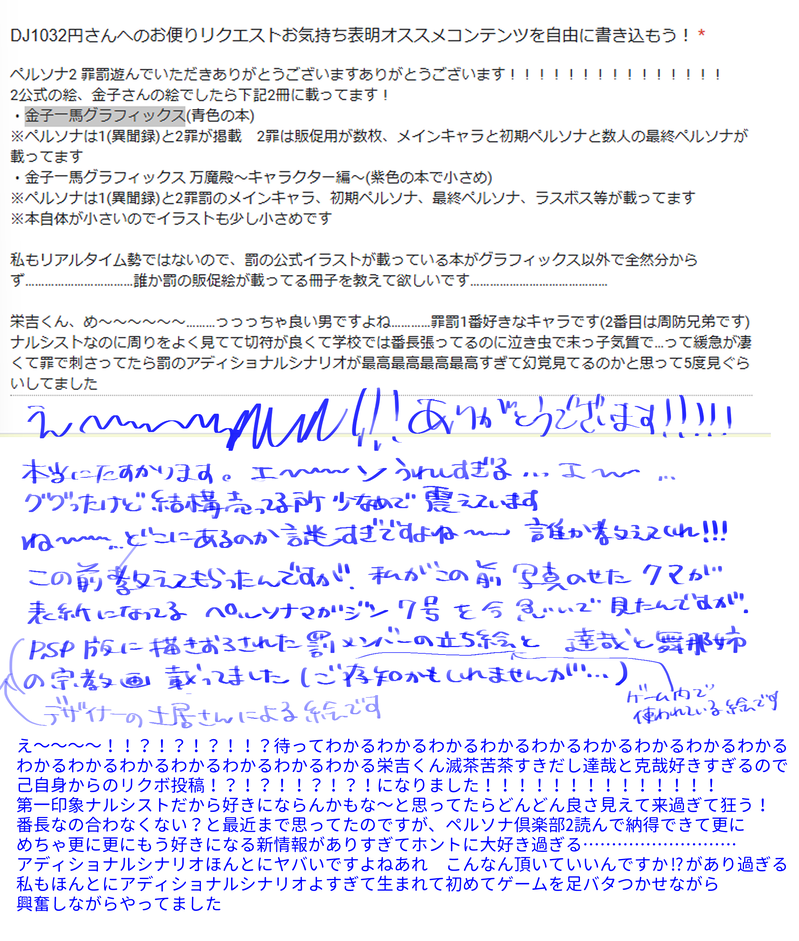 DJ1032円さんへのお便りリクエストお気持ち表明オススメコンテンツを自由に書き込もう！ *
ペルソナ2 罪罰遊んでいただきありがとうございますありがとうございます！！！！！！！！！！！！！！！
2公式の絵、金子さんの絵でしたら下記2冊に載ってます！
・金子一馬グラフィックス(青色の本)
※ペルソナは1(異聞録)と2罪が掲載　2罪は販促用が数枚、メインキャラと初期ペルソナと数人の最終ペルソナが
載ってます
・金子一馬グラフィックス 万魔殿〜キャラクター編〜(紫色の本で小さめ)
※ペルソナは1(異聞録)と2罪罰のメインキャラ、初期ペルソナ、最終ペルソナ、ラスボス等が載ってます
※本自体が小さいのでイラストも少し小さめです
私もリアルタイム勢ではないので、罰の公式イラストが載っている本がグラフィックス以外で全然分から
ず……………………………誰か罰の販促絵が載ってる冊子を教えて欲しいです……………………………………
栄吉くん、め〜〜〜〜〜〜………っっっちゃ良い男ですよね…………罪罰1番好きなキャラです(2番目は周防兄弟です)
ナルシストなのに周りをよく見てて切符が良くて学校では番長張ってるのに泣き虫で末っ子気質で…って緩急が凄
くて罪で刺さってたら罰のアディショナルシナリオが最高最高最高最高すぎて幻覚見てるのかと思って5度見ぐら
いしてました
え〜〜〜〜!!! ありがとうございます!!!!!
本当にたすかります。エ〜〜〜ンうれしすぎる… エ〜〜 …
ググったけど 結構売ってる所 少なめで 震えています
ね〜〜…どこにあるのか謎すぎですよね〜〜 誰か教えてくれ!!!
この前教えてもらったんですが、私がこの前 写真のせた クマが
表紙になってる ペルソナマガジン 7号 を今急いで 見たんですが、
PSP版に描きおろされた罰メンバーの立ち絵と 達哉と舞耶姉
の宗教画 載ってました (ご存知かもしれませんが…)
デザイナーの土居さんによる絵です
ゲーム内で
使われている絵です
え〜〜〜〜！！？！？！？！！？待ってわかるわかるわかるわかるわかるわかるわかるわかるわかる
わかるわかるわかるわかるわかるわかるわかる栄吉くん滅茶苦茶すきだし達哉と克哉好きすぎるので
己自身からのリクボ投稿！？！？！！？！？！になりました！！！！！！！！！！！！！！
第一印象ナルシストだから好きにならんかもな〜と思ってたらどんどん良さ見えて来過ぎて狂う！
番長なの合わなくない？と最近まで思ってたのですが、ペルソナ倶楽部2読んで納得できて更に
めちゃ更に更にもう好きになる新情報がありすぎてホントに大好き過ぎる………………………
アディショナルシナリオほんとにヤバいですよねあれ　こんなん頂いていいんですか!?があり過ぎる
私もほんとにアディショナルシナリオよすぎて生まれて初めてゲームを足バタつかせながら
興奮しながらやってました